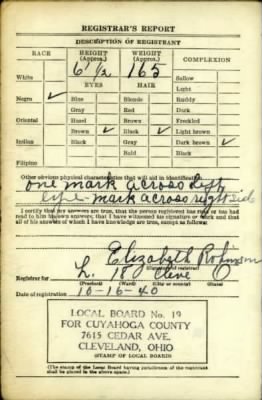 REGISTRAR'S REPORT
DESCRIPTION OF REGISTRANT
RACE HEIGHT (Approx.) WEIGHT (Approx.) COMPLEXION
6' ½ 165
White EYES HAIR Sallow
Light
Negro ✓ Blue Blonde Ruddy
Gray Red Dark
Oriental Hazel Brown Freckled
Brown ✓ Black ✓ Light brown
Indian Black Gray Dark brown ✓
Bald Black
Filipino
Other obvious physical characteristics that will aid in identification
one mark across left
eye - mark across right side
I certify that my answers are true; that the person registered has read or has had
read to him his own answers; that I have witnessed his signature or mark and that
all of his answers of which I have knowledge are true, except as follows:
Elizabeth Robinson
(Signature of registrar)
Registrar for L. 18 Cleve O
(Precinct) (Ward) (City or county) (State)
Date of registration 10-16-40
LOCAL BOARD No. 19
FOR CUYAHOGA COUNTY
7615 CEDAR AVE.
CLEVELAND, OHIO
(STAMP OF LOCAL BOARD)
(The stamp of the Local Board having jurisdiction of the registrant
shall be placed in the above space.)